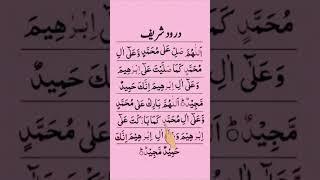 درود شریف
اَللّٰهُمَّ صَلِّ عَلٰی مُحَمَّدٍ وَّعَلٰٓی اٰلِ
مُحَمَّدٍ کَمَا صَلَّیْتَ عَلٰٓی اِبْرٰهِیْمَ
وَعَلٰٓی اٰلِ اِبْرٰهِیْمَ اِنَّکَ حَمِیْدٌ
مَّجِیْدٌ ؕ اَللّٰهُمَّ بَارِکْ عَلٰی مُحَمَّدٍ
وَّعَلٰٓی اٰلِ مُحَمَّدٍ کَمَا بَارَکْتَ عَلٰٓی
اِبْرٰهِیْمَ وَعَلٰٓی اٰلِ اِبْرٰهِیْمَ اِنَّکَ
حَمِیْدٌ مَّجِیْدٌ ؕ